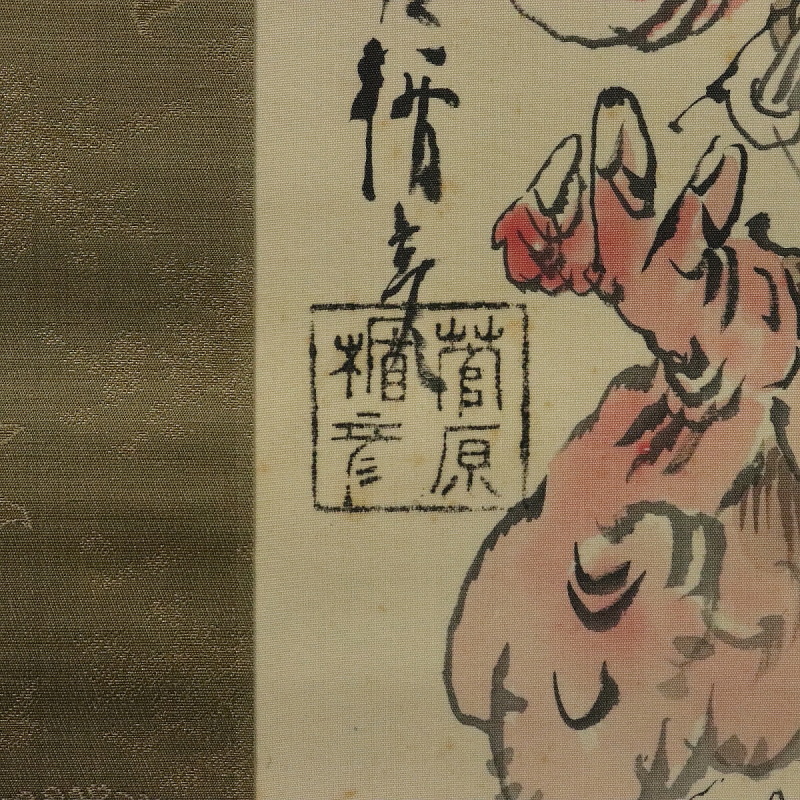 楯彦
菅原
楯彦